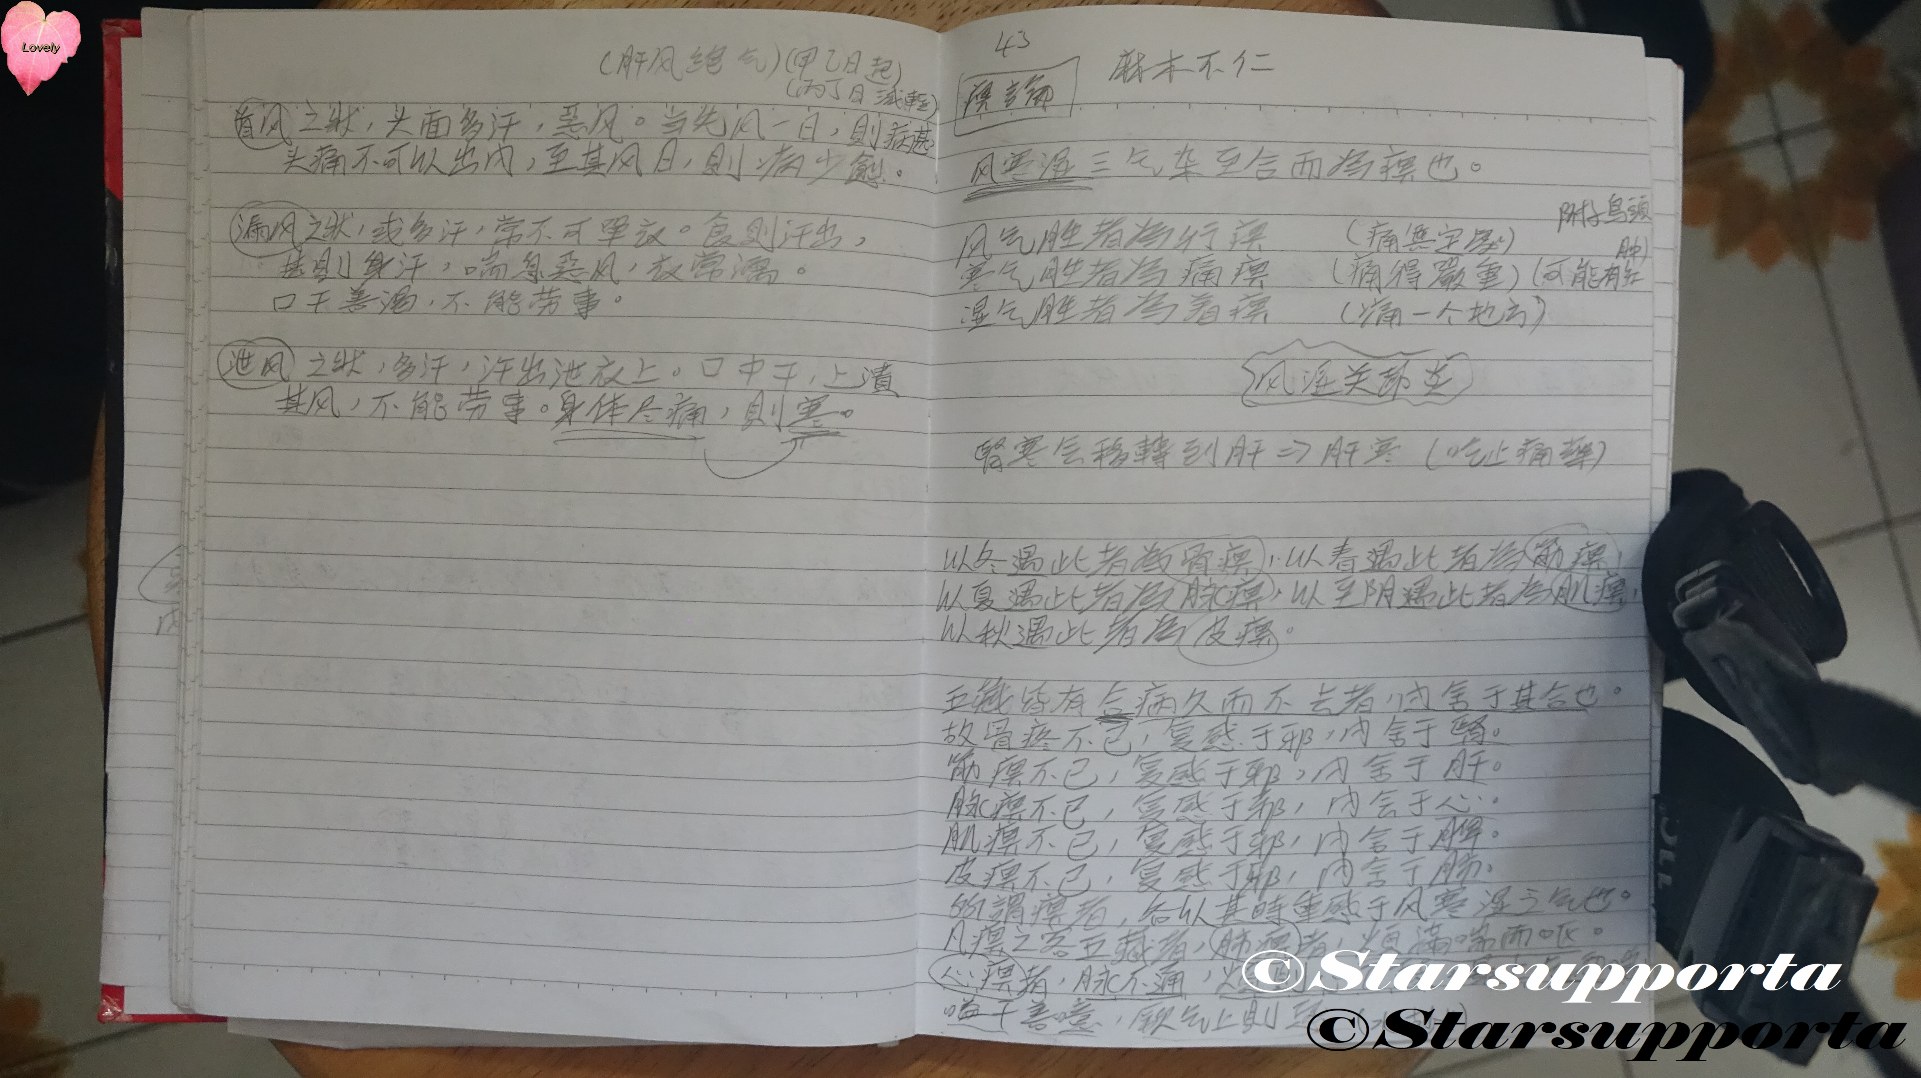 Lovely
(肝风绝气)(甲乙日起)
(丙丁日減輕)
首风之狀,头面多汗,恶风。当先风一日,則病甚
头痛不可以出内,至其风日,則病少愈。
漏风之狀,或多汗,常不可單衣。食則汗出,
甚則身汗,喘息恶风,衣常濡。
口干善渴,不能劳事。
泄风之狀,多汗,汗出泄衣上。口中干,上漬
其风,不能劳事。身体尽痛,則寒。
43
痹論 麻木不仁
风寒湿三气杂至合而為痹也。
附子烏頭
风气胜者為行痹 (痛無定處)
寒气胜者為痛痹 (痛得嚴重)(可能有肿)
湿气胜者為着痹 (痛一个地方)
风湿关节炎
腎寒会移轉到肝⇒肝寒 (吃止痛藥)
以冬遇此者為骨痹,以春遇此者為筋痹,
以夏遇此者為脉痹,以至阴遇此者為肌痹,
以秋遇此者為皮痹。
五藏皆有合病久而不去者,内舍于其合也。
故骨疼不已,复感于邪,内舍于腎。
筋痹不已,复感于邪,内舍于肝。
脉痹不已,复感于邪,内舍于心。
肌痹不已,复感于邪,内舍于脾。
皮痹不已,复感于邪,内舍于肺。
所謂痹者,各以其時重感于风寒湿之气也。
凡痹之客五藏者,肺痹者,煩滿喘而呕。
心痹者,脉不通,
嗌干善噫,厥气上則恐
©Starsupporta
©Starsupporta